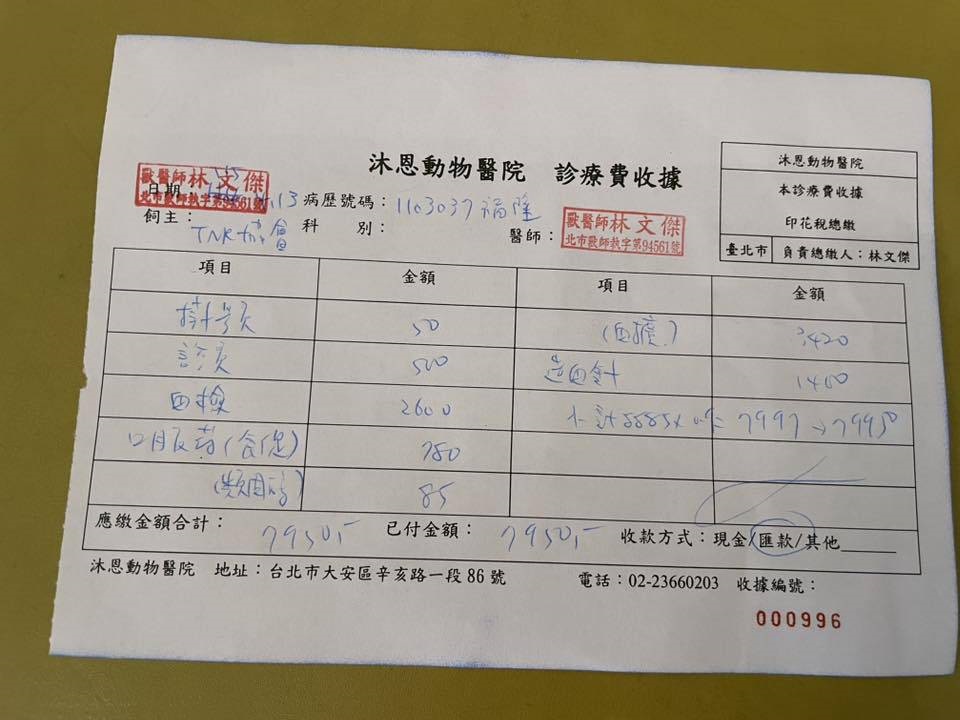 沐恩動物醫院 診療費收據
沐恩動物醫院
本診療費收據
印花稅總繳
臺北市 負責總繳人：林文傑
獸醫師 林文傑
北市獸師執字第94561號
日期 .13 病歷號碼： 1103037 福隆
飼主： TNR協會 科 別： 醫師：
獸醫師 林文傑
北市獸師執字第94561號
項目 金額 項目 金額
掛號 50 (血擴) 3420
診 500 造血針 1400
血檢 2600 小計 8885x 0.9= 7997 → 7950
口服 780
85
應繳金額合計： 7950,- 已付金額： 7950,- 收款方式：現金/匯款/其他
沐恩動物醫院 地址：台北市大安區辛亥路一段86號 電話：02-23660203 收據編號：
000996